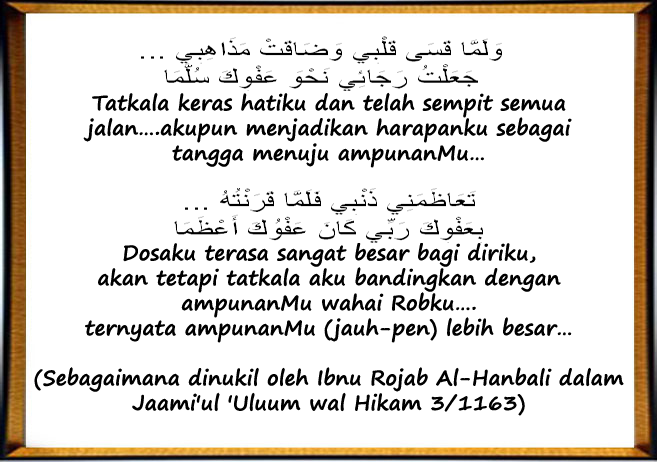 وَلَمَّا قَسَى قَلْبِي وَضَاقَتْ مَذَاهِبِي ...
جَعَلْتُ رَجَائِي نَحْوَ عَفْوِكَ سُلَّمَا
Tatkala keras hatiku dan telah sempit semua
jalan....akupun menjadikan harapanku sebagai
tangga menuju ampunanMu...
تَعَاظَمَنِي ذَنْبِي فَلَمَّا قَرَنْتُهُ ...
بِعَفْوِكَ رَبِّي كَانَ عَفْوُكَ أَعْظَمَا
Dosaku terasa sangat besar bagi diriku,
akan tetapi tatkala aku bandingkan dengan
ampunanMu wahai Robku....
ternyata ampunanMu (jauh-pen) lebih besar...
(Sebagaimana dinukil oleh Ibnu Rojab Al-Hanbali dalam
Jaami'ul 'Uluum wal Hikam 3/1163)